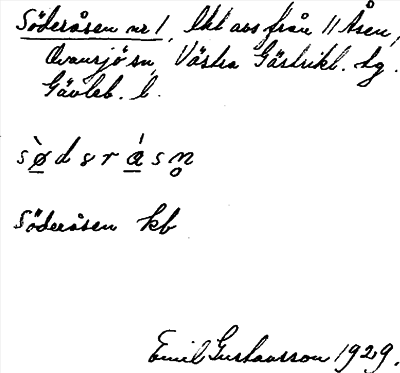 Söderåsen nr 1, lkt avs från 11 Åsen,
Ovansjö sn, Västra Gästrikl. tg.
Gävleb. l.
sø̀dərǻsn̥
Söderåsen kb
Emil Gustavsson 1929.